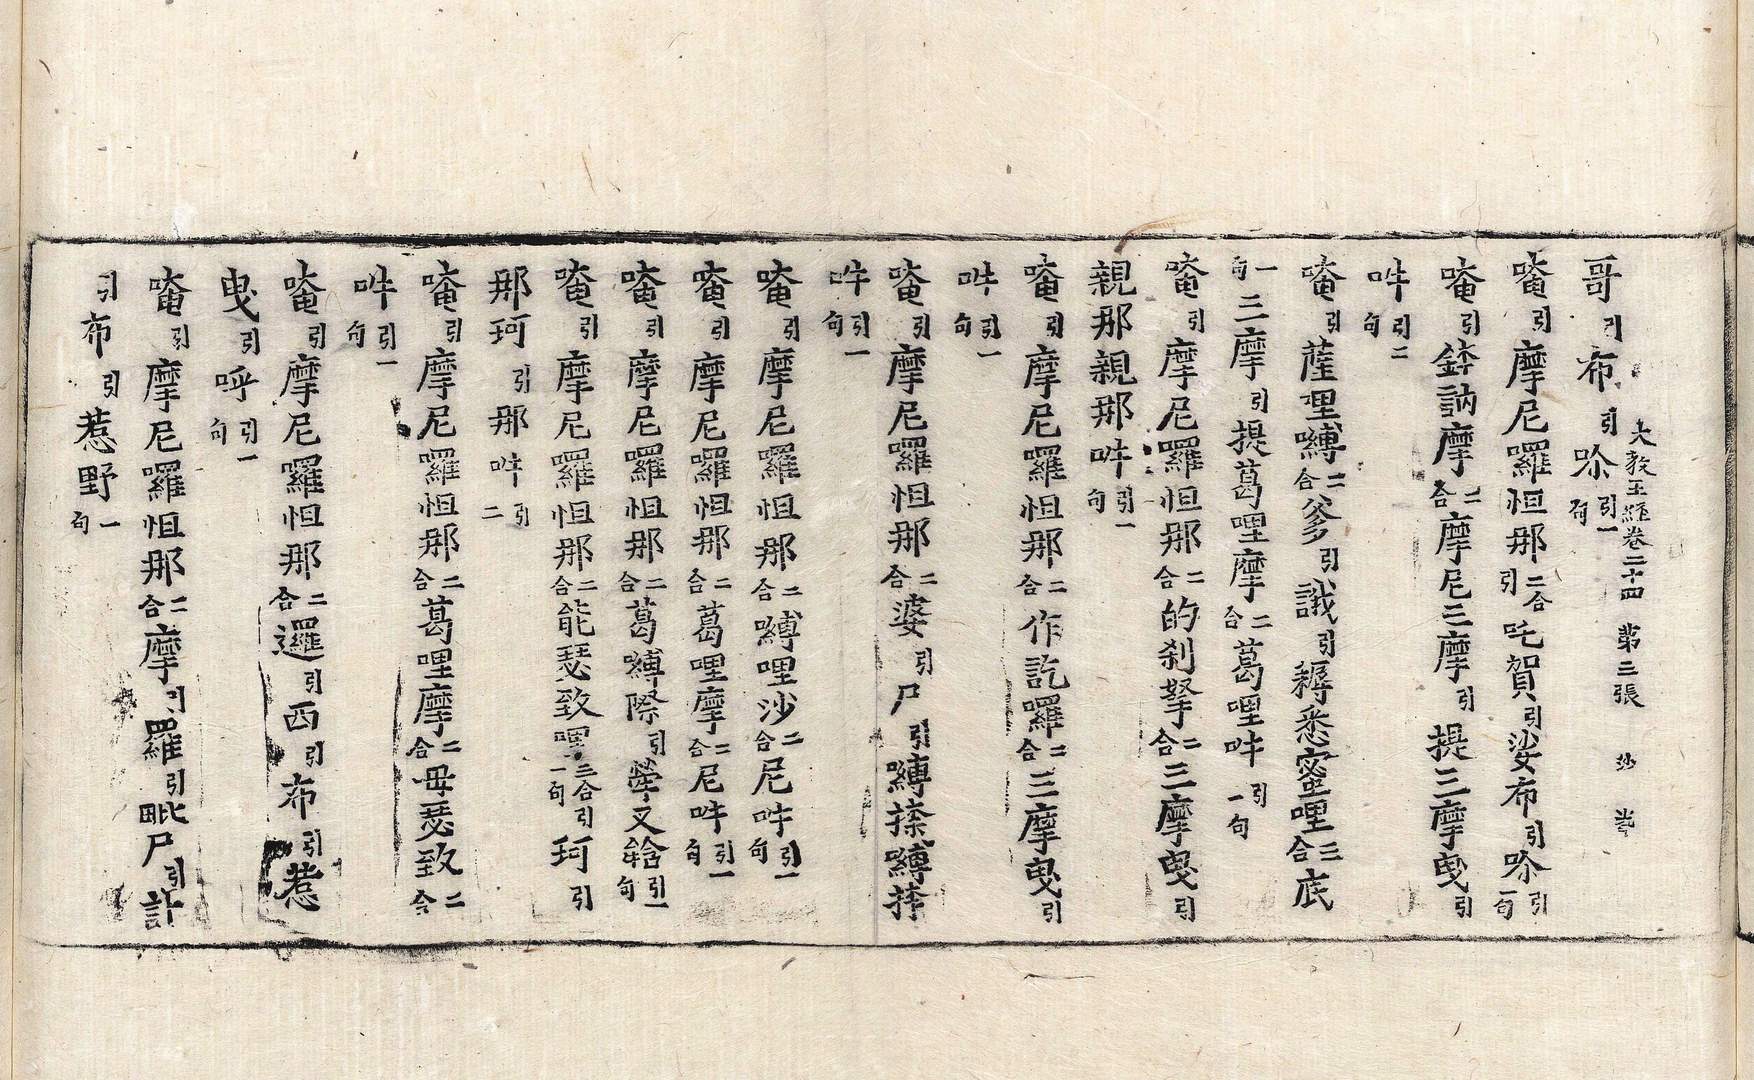 大敎王經卷二十四 第三張 沙 〇
哥引布引唅引一句
唵引摩尼囉怛那二合引吒賀引娑布引唅引一句
唵引鉢訥摩二合摩尼三摩引提三摩曳引
吽引二句
唵引薩哩嚩二合爹引誐引耨悉蜜哩三合底
一句三摩引提葛哩摩二合葛哩吽引一句
唵引摩尼囉怛那二合的刹拏二合三摩曳引
親那親那吽引一句
唵引摩尼囉怛那二合作訖囉二合三摩曳引
吽引一句
唵引摩尼囉怛那二合婆引尸引嚩捺嚩捺
吽引一句
唵引摩尼囉怛那二合嚩哩沙二合尼吽引一句
唵引摩尼囉怛那二合葛哩摩二合尼吽引一句
唵引摩尼囉怛那二合葛嚩際引
唵引摩尼囉怛那二合能瑟致哩三合引一句珂引
那珂引那吽引二
唵引摩尼囉怛那二合葛哩摩二合母瑟致二合
吽引一句
唵引摩尼囉怛那二合邏引西引布引惹
曳引呼引一句
唵引摩尼囉怛那二合摩引羅引毗尸引計
引布引惹野一句